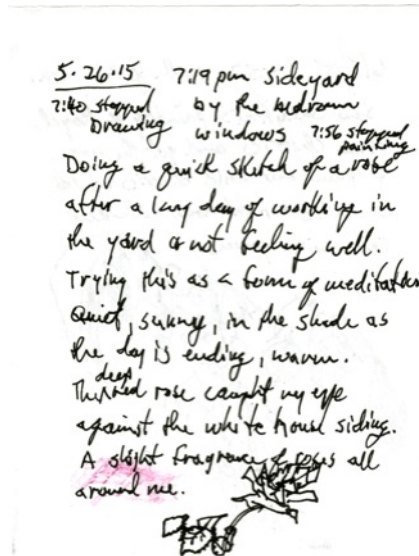 5.26.15 7:19 pm sideyard
7:40 stopped by the bedroom
Drawing windows 7:56 stopped
painting
Doing a quick sketch of a rose
after a long day of working in
the yard & not feeling well.
Trying this as a form of meditation
Quiet, sunny, in the shade as
the day is ending, warm.
deep
This red rose caught my eye
against the white house siding.
A slight fragrance of roses all
around me.